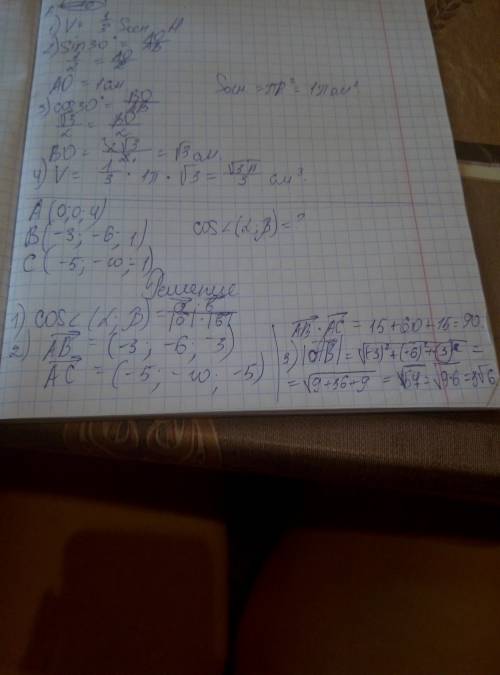 1) V = 1/3 Sосн. H
2) sin30° = AO/AB
1/2 = AO/2
AO = 1см
Sосн = πR² = 1π см²
3) cos30° = BO/AB
√3/2 = BO/2
BO = 2√3/2 = √3 см.
4) V = 1/3 · 1π · √3 = √3π/3 см³.
A (0; 0; 4)
B (-3; -6; 1)
C (-5; -10; -1)
cos∠(α; β) = ?
Решение
1) cos∠(α; β) = a · b / |a| · |b|
2) AB = (-3; -6; -3)
AC = (-5; -10; -5)
AB · AC = 15 + 60 + 15 = 90.
3) |AB| = √(-3)² + (-6)² + (-3)² =
= √9+36+9 = √54 = √9·6 = 3√6